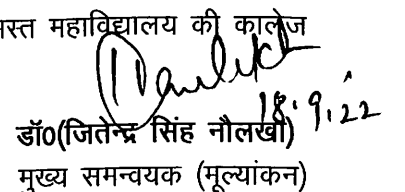 स्त महाविद्यालय की कालेज
18.9.22
डॉ0(जितेन्द्र सिंह नौलखा)
मुख्य समन्वयक (मूल्यांकन)